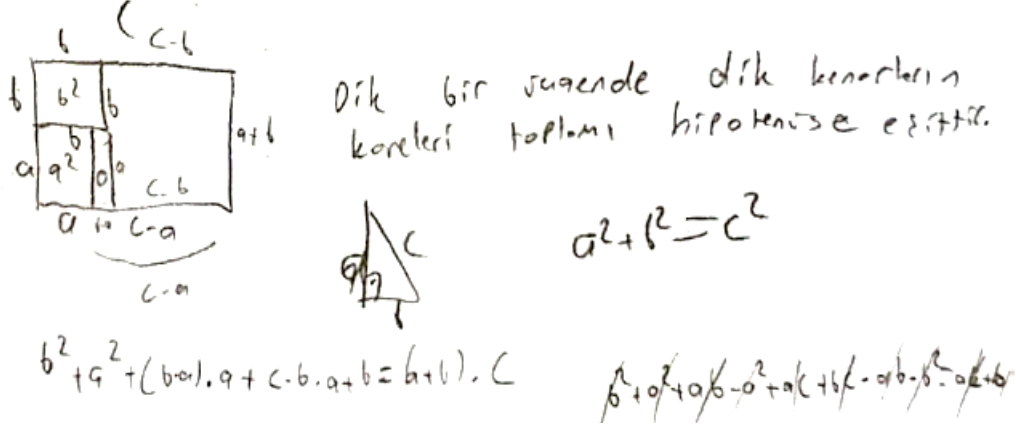 b
C
c-b
b
b²
b
a+b
b
a
a²
a
c-b
a
c-a
c-a
Dik bir üçgende dik kenarların
kareleri toplamı hipotenüse eşittir.
a
c
b
a²+b²=c²
b²+a²+(b-a).a+c-b.a+b=(a+b).c
b²+a²+ab-a²+ac+bc-ab-b²=ac+b